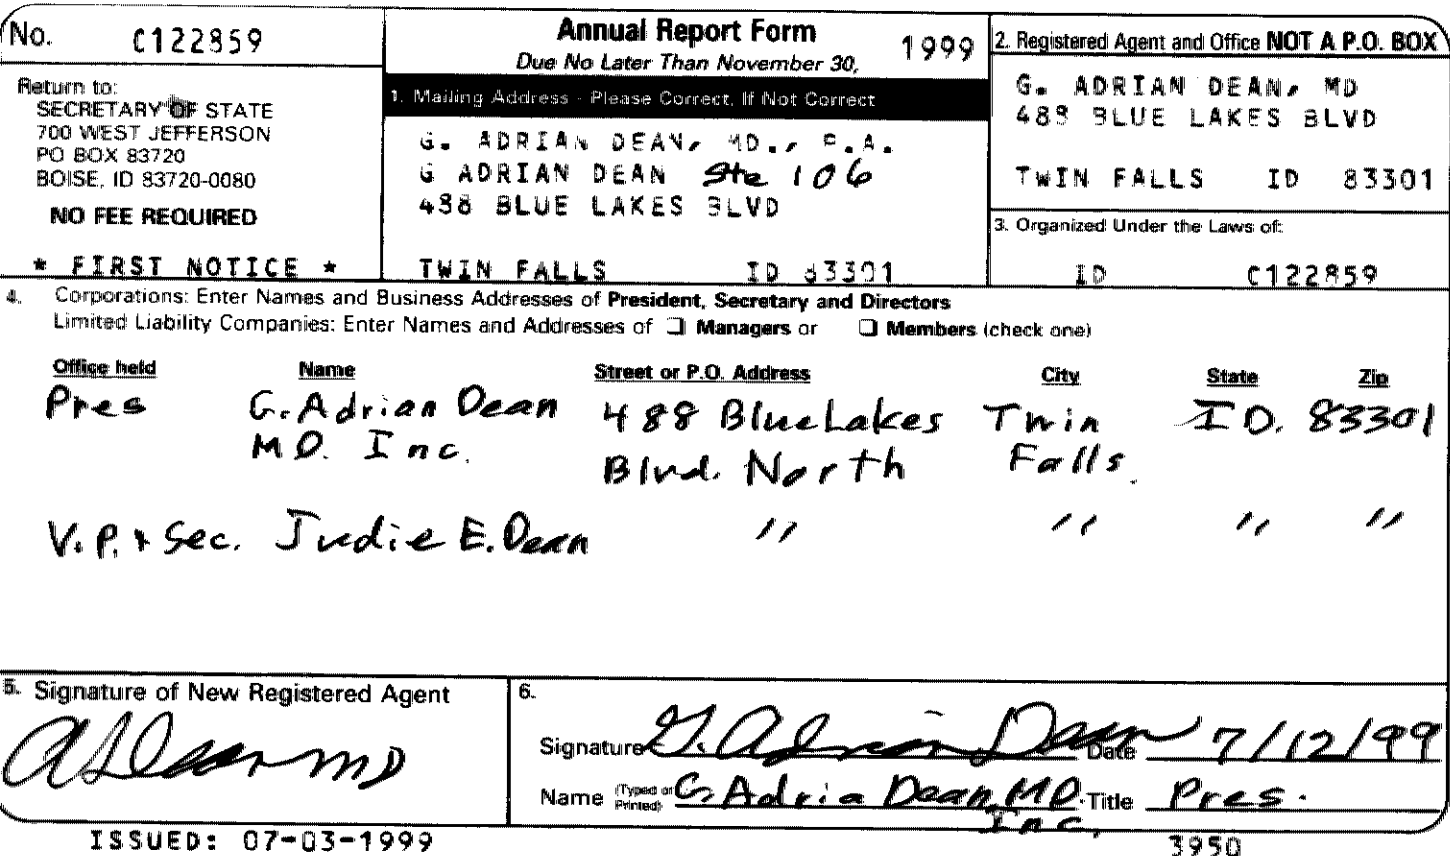 No. C122859
Annual Report Form 1999
Due No Later Than November 30,
Return to:
SECRETARY OF STATE
700 WEST JEFFERSON
PO BOX 83720
BOISE, ID 83720-0080
NO FEE REQUIRED
* FIRST NOTICE *
1. Mailing Address - Please Correct, If Not Correct
G. ADRIAN DEAN, MD., P.A.
G ADRIAN DEAN Ste 106
488 BLUE LAKES BLVD
TWIN FALLS ID 83301
2. Registered Agent and Office NOT A P.O. BOX
G. ADRIAN DEAN, MD
488 BLUE LAKES BLVD
TWIN FALLS ID 83301
3. Organized Under the Laws of:
ID C122859
4. Corporations: Enter Names and Business Addresses of President, Secretary and Directors
Limited Liability Companies: Enter Names and Addresses of ❑ Managers or ❑ Members (check one)
Office held Name Street or P.O. Address City State Zip
Pres G. Adrian Dean 488 Blue Lakes Twin ID. 83301
MD. Inc. Blvd. North Falls.
V.P. + Sec. Judie E. Dean " " " "
5. Signature of New Registered Agent
MD
6.
Signature G. Adrian Dean Date 7/12/99
Name (Typed or Printed) G. Adria Dean, MD. Title Pres.
Inc.
ISSUED: 07-03-1999
3950